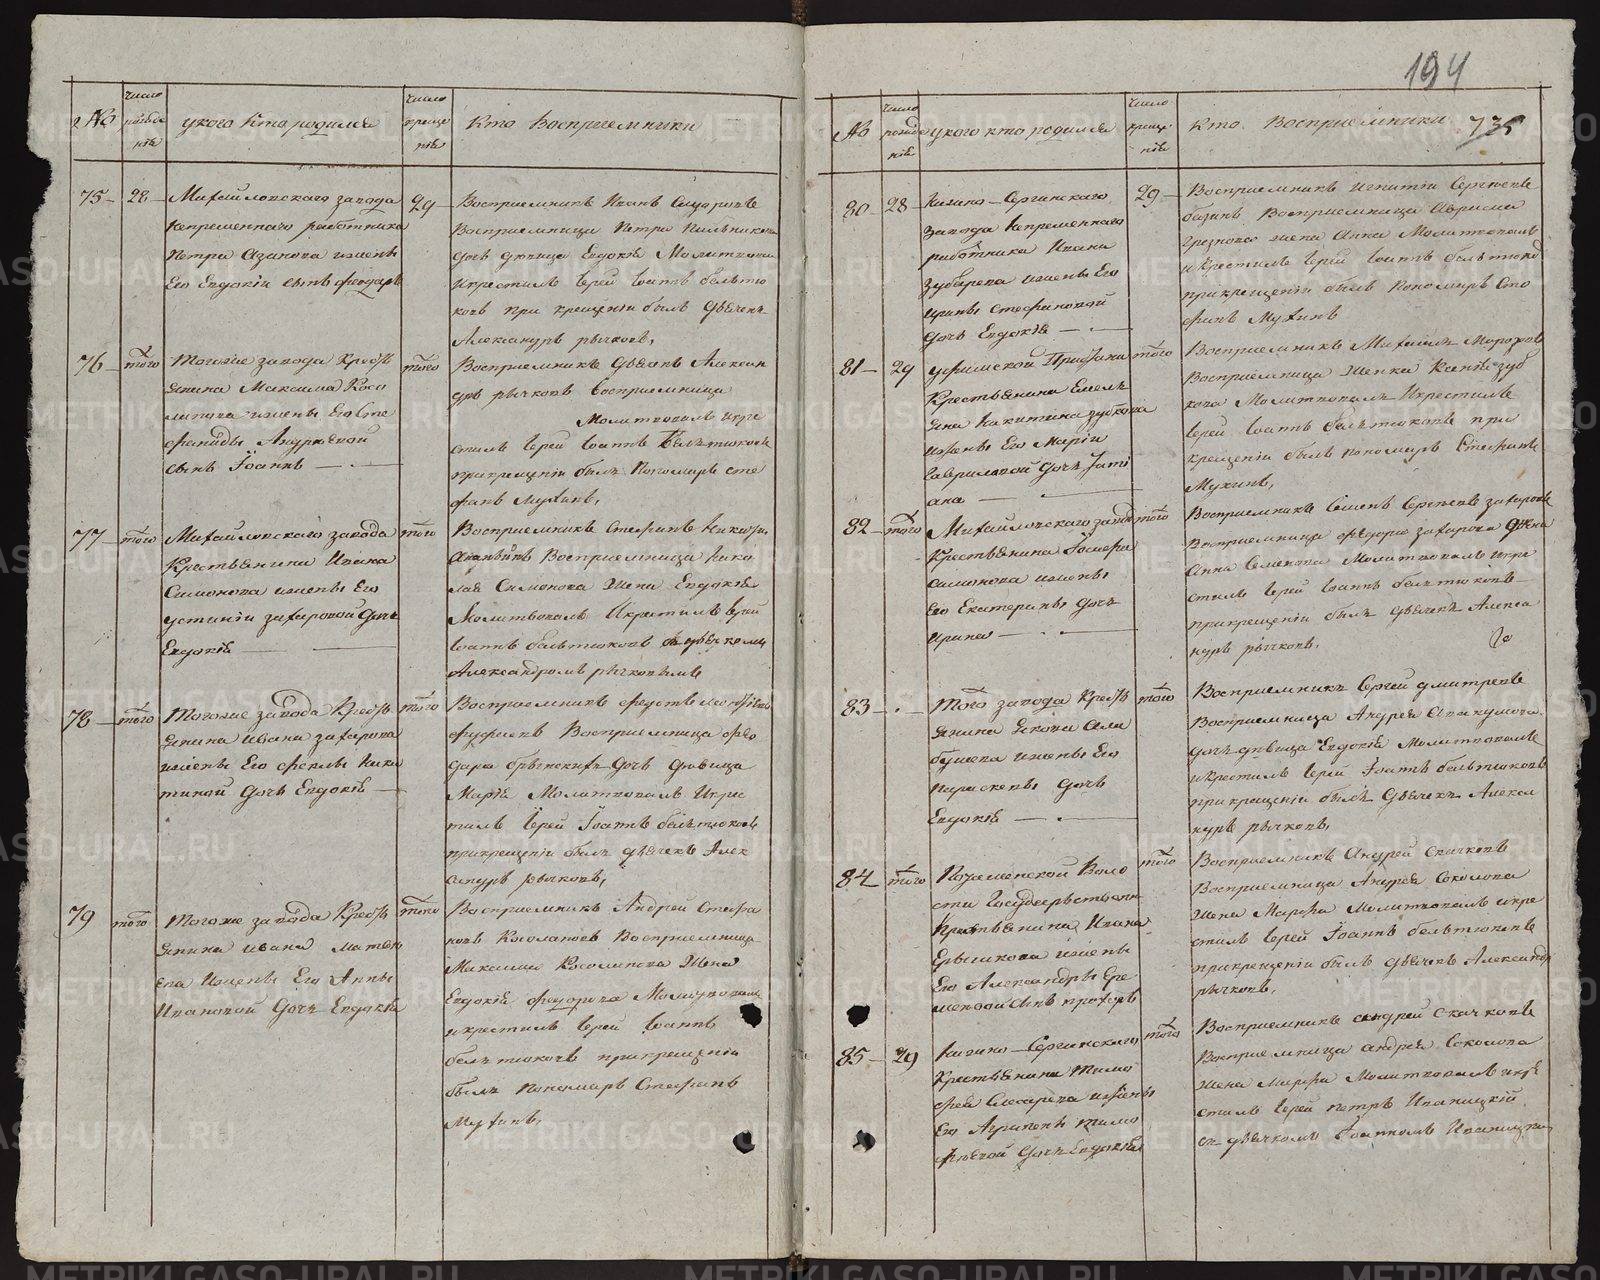 194
735
№
число рожде нiя
у кого кто родился
число креще нiя
Кто Восприемники
75 - 28 -
Михайловскаго завода
непременнаго работника
Петра Азанова изжены
Его Евдокiи сынъ Феодоръ
29
Восприемникъ Иванъ Сидоровъ
Восприемница Петра Пильникова
дочь девица Евдокiя Молитвовалъ
икрестилъ Iерей Iоаннъ бельтю
ковъ при крещенiи былъ дьячекъ
Александръ рычковъ,
76 - того
Тогоже завода Кресть
янина Максима Косо
лапова изжены Его Сте
фаниды Андреевой
сынъ Iоаннъ
того
Восприемникъ дьячекъ Алексан
дръ рычковъ восприемница
Молитвовалъ икре
стилъ Iерей Iоаннъ Бельтюковъ
прикрещенiи былъ Пономарь сте
фанъ Мухинъ,
77 - того
Михайловскаго завода
Крестьянина Ивана
Симонова изжены Его
устинiи захаровой дочь
Евдокiя
того
Восприемникъ Стефанъ
Восприемница Нико
лая Симонова Жена Евдокiя
Молитвовалъ Икрестилъ Iерей
Iоаннъ бельтюковъ съ дьячкомъ
Александромъ рычковымъ
78 - того
Тогоже завода Кресть
янина Ивана захарова
изжены Его феклы Ники
тиной дочь Евдокiя
того
Восприемникъ
Восприемница фео
дора дочь девица
Марiя Молитвовалъ Икрес
тилъ Iерей Iоаннъ бельтюковъ
прикрещенiи былъ дьячекъ Алек
сандръ рычковъ,
79 того
Тогоже завода Кресть
янина Ивана Матве
ева Изжены Его Анны
Ивановой дочь Евдокiя
того
Восприемникъ Андрей Стефа
новъ Косолаповъ Восприемница
Максима Косолапова Жена
Евдокiя федорова Молитвовалъ
икрестилъ Iерей Iоаннъ
бельтюковъ прикрещенiи
былъ Пономарь Стефанъ
Мухинъ,
№
число рожде нiя
у кого кто родился
число креще нiя
Кто Восприемники
80 - 28 -
Нижно-Сергинскаго
завода Непременнаго
работника Ивана
зубарева изжены Его
ирины Стефановой
дочь Евдокiя
29 -
Восприемникъ игнатiй Сергеевъ
Восприемница
жена Анна Молитвовалъ
икрестилъ Iерей Iоаннъ бельтюков
прикрещенiи былъ Пономарь Сте
фанъ Мухинъ
81 - 29
уфимской Пристани
Крестьянина Емель
яна Никитина зубкова
изжены Его Марiи
Гавриловой дочь Тати
ана
того
Восприемникъ Михаилъ Морозов
Восприемница Женка Ксенiя зуб
кова Молитвовалъ Икрестилъ
Iерей Iоаннъ бельтюковъ при
крещенiи былъ пономарь Стефанъ
Мухинъ,
82 - того
Михайловскаго завода
Крестьянина
Симонова изжены
Его Екатерины дочь
Ирина
того
Восприемникъ Семенъ Сергеевъ захаровъ
Восприемница федора захарова жена
Анна Семенова Молитвовалъ икре
стилъ Iерей Iоаннъ бельтюковъ
прикрещенiи былъ дьячекъ Алекса
ндръ рычковъ,
83 - . -
Того завода Кресть
янина Якова
изжены Его
параскевы дочь
Евдокiя
того
Восприемникъ Сергей дмитревъ
Восприемница Андрея Авакумова
дочь девица Евдокiя Молитвовалъ
икрестилъ Iерей Iоаннъ бельтюковъ
прикрещенiи былъ дьячекъ Алекса
ндръ рычковъ,
84 того
Воло
сти Государственна
Крестьянина Ивана
Ярышкова изжены
Его Александры Ере
меевой сынъ прохоръ
того
Восприемникъ Андрей Скачковъ
Восприемница Андрея Соколова
жена Марфа Молитвовалъ икре
стилъ Iерей Iоаннъ бельтюковъ
прикрещенiи былъ дьячекъ Александръ
рычковъ,
85 - 29
Нижно-Сергинскаго
Крестьянина Тимо
фея Слесарева изжены
Его Агрипены тимо
феевой дочь Евдокiя
того
Восприемникъ андрей Скачковъ
Восприемница андрея Соколова
жена Марфа Молитвовалъ икре
стилъ Iерей петръ Иваницкiй
съ дьячкомъ Iоанномъ Иваницким
METRIKI.GASO-URAL.RU